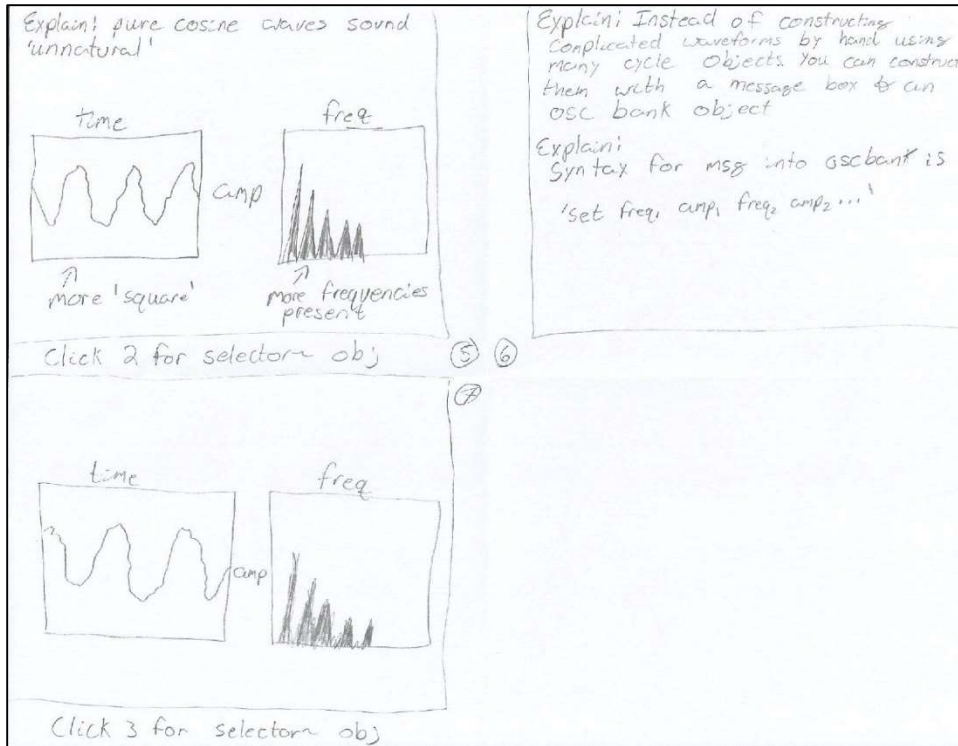 Explain: pure cosine waves sound
'unnatural'
time
freq
amp
more 'square'
more frequencies
present
Click 2 for selector~ obj
5
6
Explain: Instead of constructing
complicated waveforms by hand using
many cycle objects you can construct
them with a message box & an
osc bank object
Explain:
Syntax for msg into oscbank is
'set freq₁ amp₁ freq₂ amp₂...'
7
time
freq
amp
Click 3 for selector~ obj